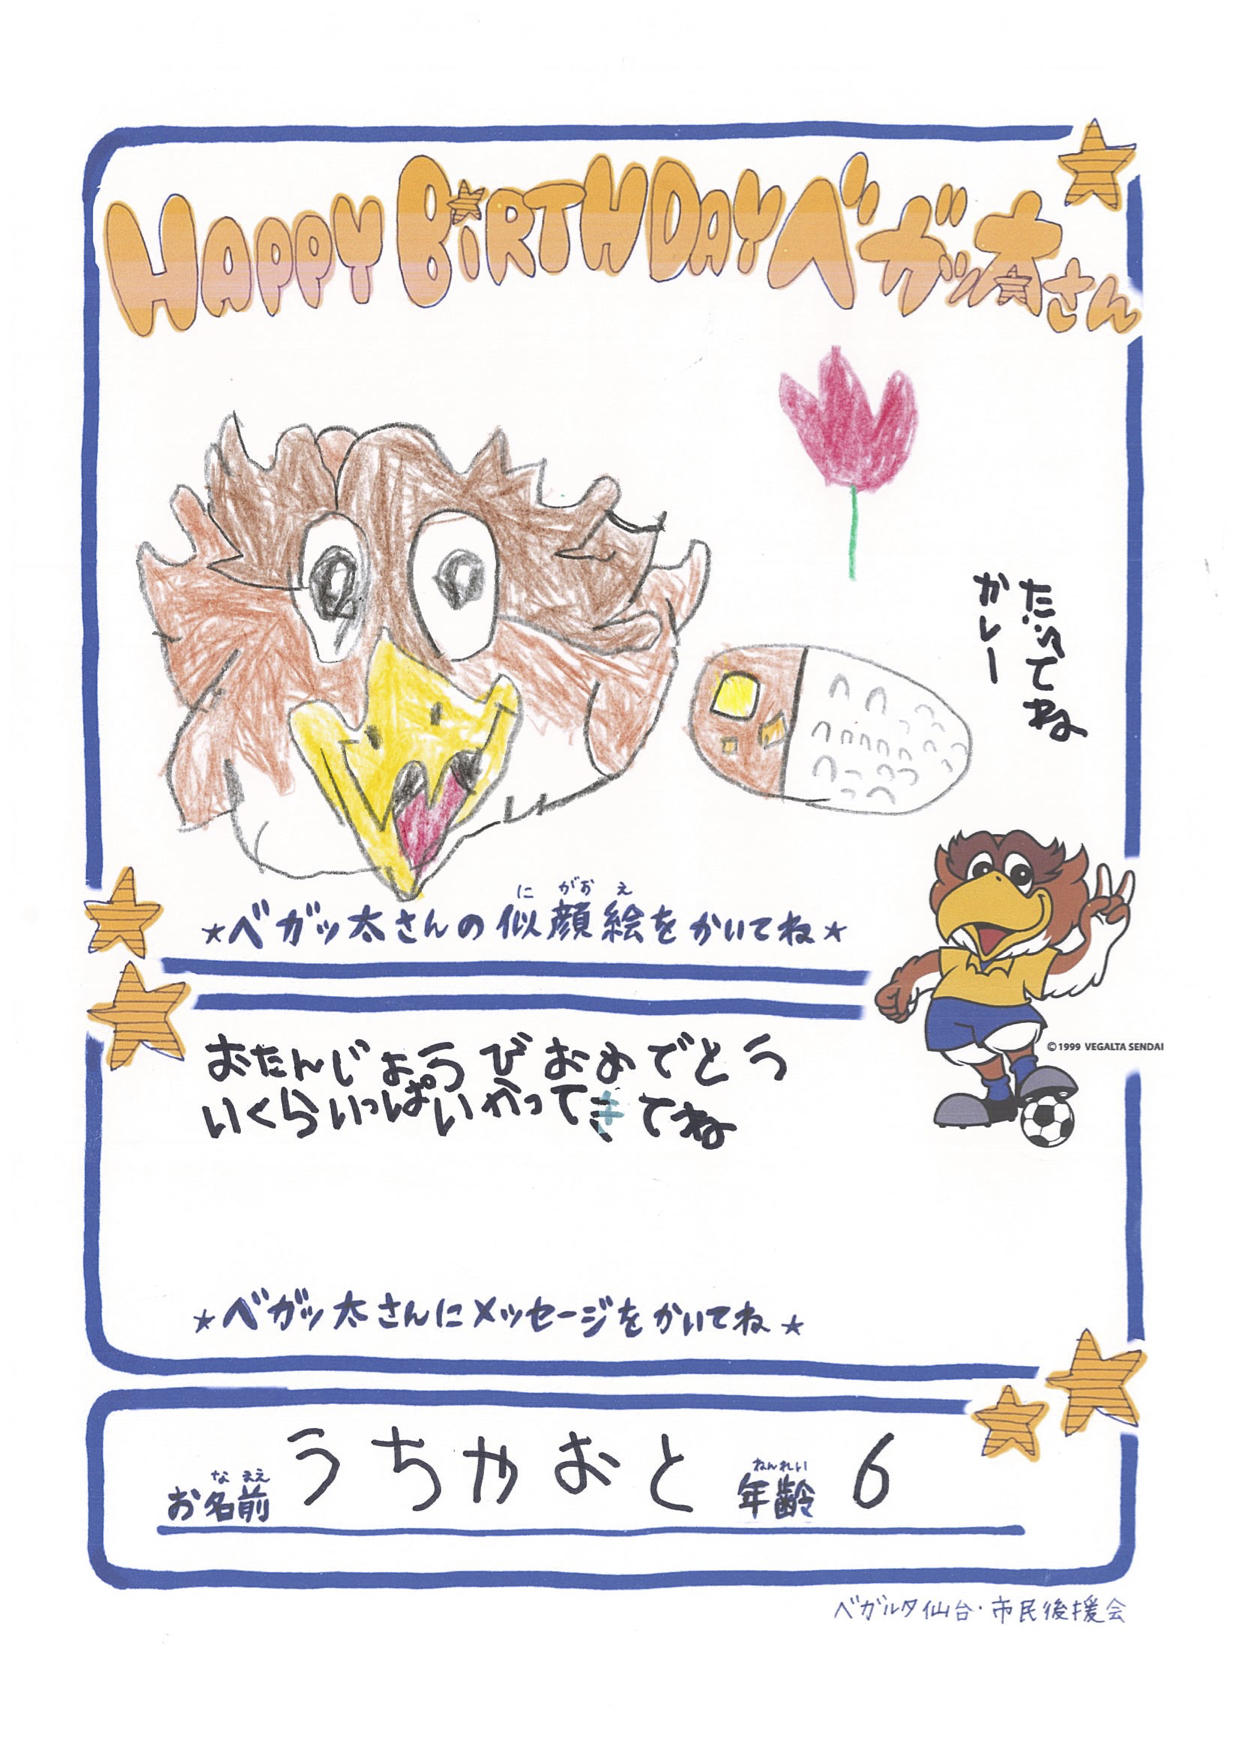 HAPPY BiRTHDAY ベガッ太さん
たべてね
カレー
にがおえ
★ベガッ太さんの似顔絵をかいてね★
©1999 VEGALTA SENDAI
おたんじょうびおめでとう
いくらいっぱいかってきてね
★ベガッ太さんにメッセージをかいてね★
なまえ ねんれい
お名前 うちやおと 年齢 6
ベガルタ仙台・市民後援会